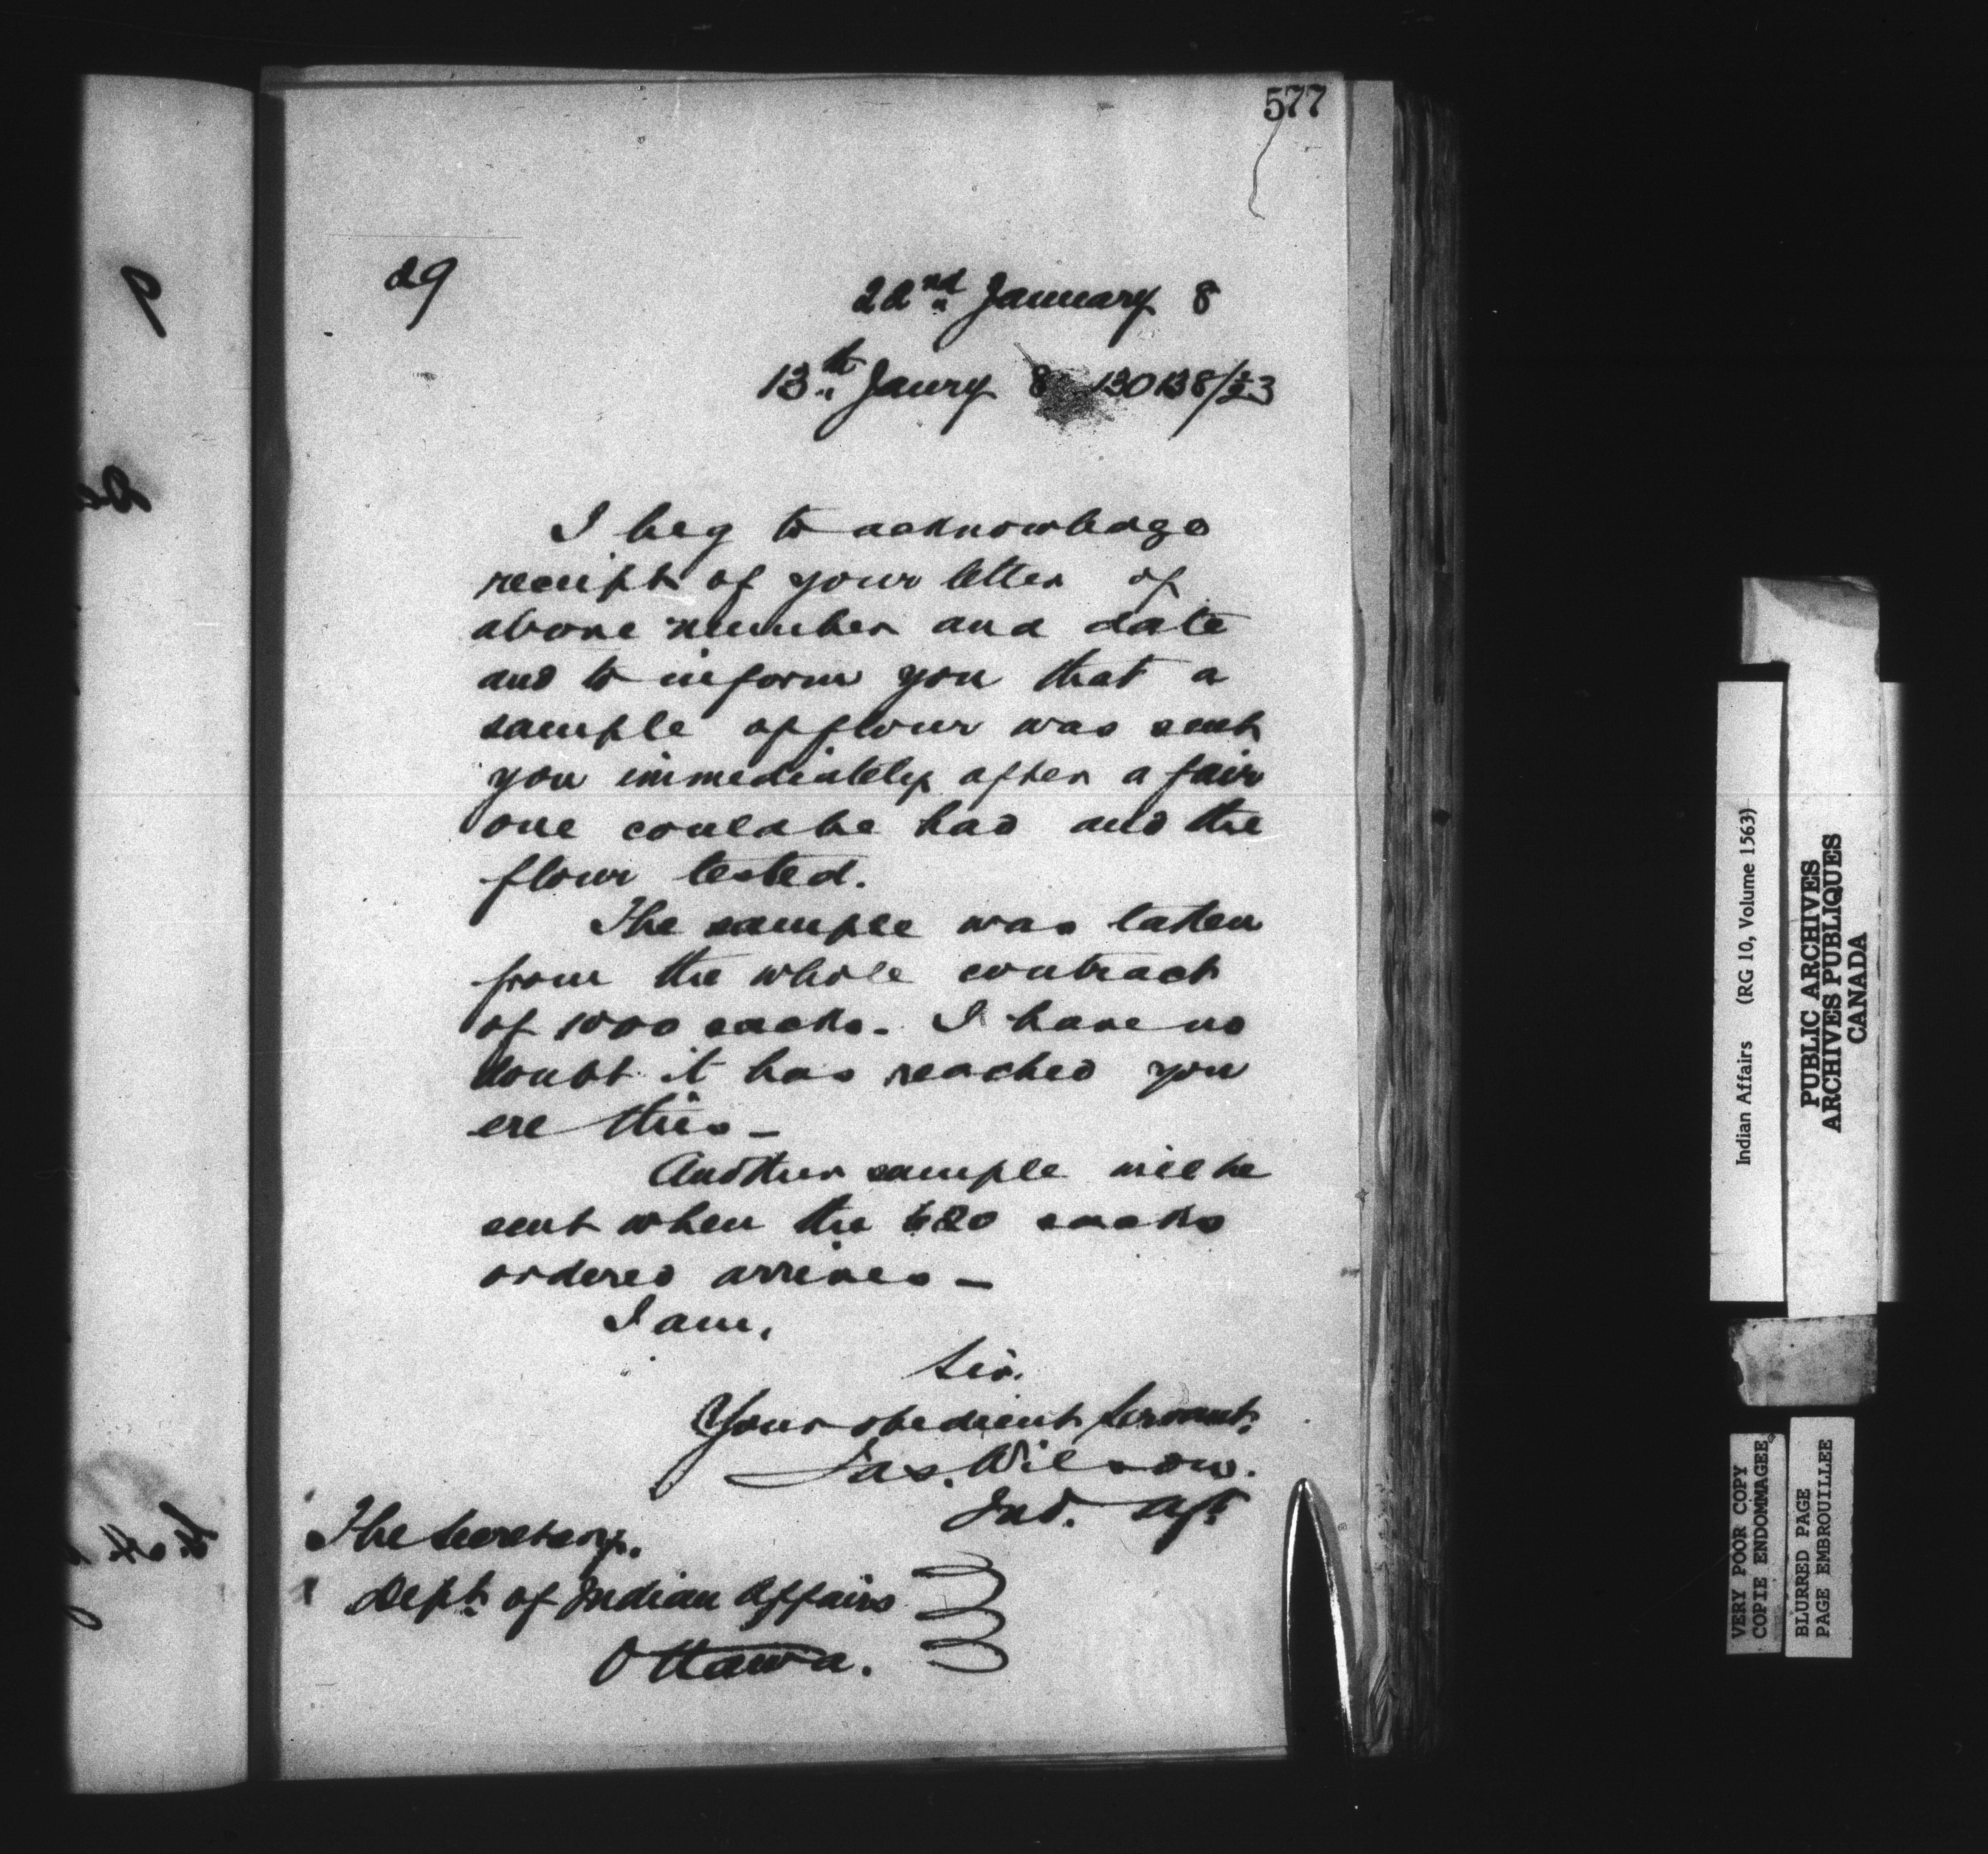 577
29
22nd January 8
13th Jany 8 130138/
I beg to acknowledge
receipt of your letter of
above number and date
and to inform you that a
sample of flour was sent
you immediately after a fair
one could be had and the
flour tested.
The sample was taken
from the whole contract
of 1000 sacks. I have no
doubt it has reached you
ere this -
Another sample will be
sent when the 620 sacks
ordered arrives -
I am,
Sir.
Your obedient Servant.
Jas. Wilson.
Ind. Agt
The Secretary.
Dept. of Indian Affairs
Ottawa.
Indian Affairs (RG 10, Volume 1563)
PUBLIC ARCHIVES
ARCHIVES PUBLIQUES
CANADA
VERY POOR COPY
COPIE ENDOMMAGEE
BLURRED PAGE
PAGE EMBROUILLEE